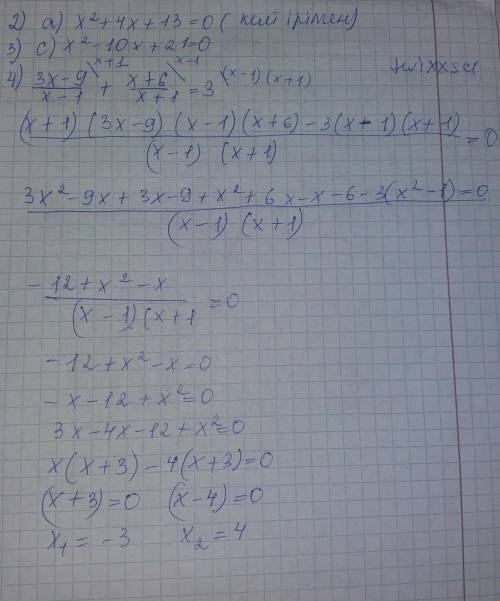 2) a) x² + 4x + 13 = 0 ( келтірімен)
3) c) x² - 10x + 21 = 0
4) \frac{3x-9}{x-1}^{\x+1} + \frac{x+6}{x+1}^{\x-1} = 3^{\(x-1)(x+1)}
\frac{(x+1) (3x-9) (x-1)(x+6) - 3(x-1)(x+1)}{(x-1) (x+1)} = 0
\frac{3x² - 9x + 3x - 9 + x² + 6x - x - 6 - 3(x² - 1)}{(x-1) (x+1)} = 0
\frac{-12 + x² - x}{(x-1)(x+1} = 0
-12 + x² - x = 0
-x - 12 + x² = 0
3x - 4x - 12 + x² = 0
x(x+3) - 4(x+3) = 0
(x+3) = 0 (x-4) = 0
x₁ = -3 x₂ = 4